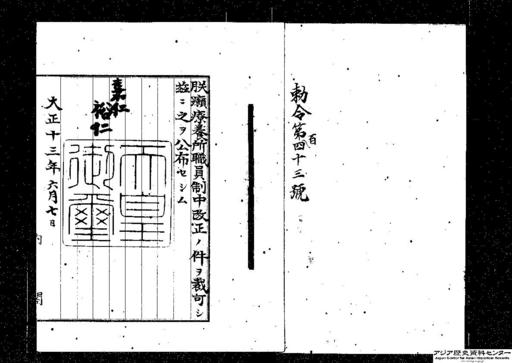 勅令第百四十三號
朕癩療養所職員制中改正ノ件ヲ裁可シ
玆ニ之ヲ公布セシム
嘉仁
裕仁
天皇御璽
大正十三年六月七日
内閣
アジア歴史資料センター
Japan Center for Asian Historical Records